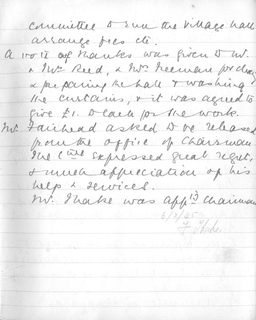 committee to run the Village hall
arrange fees etc.
A vote of thanks was given to Mr.
& Mrs Reed, & Mrs Freeman for
& preparing the hall & washing
the curtains, & it was agreed to
give £1. to each for the work.
Mr. Fairhead asked to be released
from the office of Chairman
The Cttee expressed great regret,
& much appreciation of his
help & services.
Mr. Thake was apptd Chairman